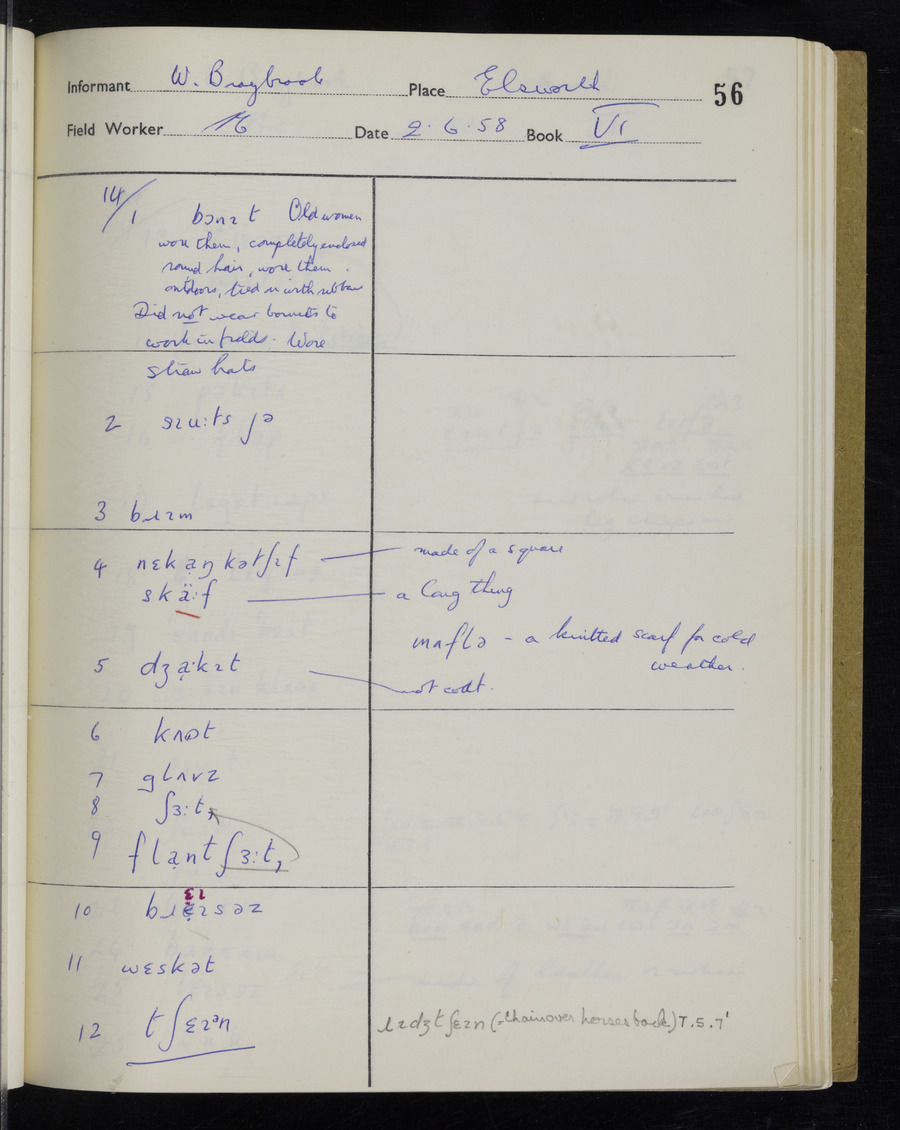 Informant W. Braybrook Place Elsworth 56
Field Worker Date 2.6.58 Book VI
14/
1 bɔnɪt Old women
wore them, completely enclosed
round hair, wore them
outdoors, tied with ribbon
Did not wear bonnets to
work in fields. Wore
straw hats
2
3 bɹɪm
4 nɛkạŋkətʃɪf made of a square
skä:f a long thing
mʌflə - a knitted scarf for cold
weather.
5 dʒạ·kɪt not coat.
6
7 glʌvz
8 ʃɜ:t,
9 flạnt ʃɜ:t,
10
11 wɛskət
12 tʃɛɪᵊn ɹɪdʒtʃɛɪn (='chain over horses back) T.5.7'